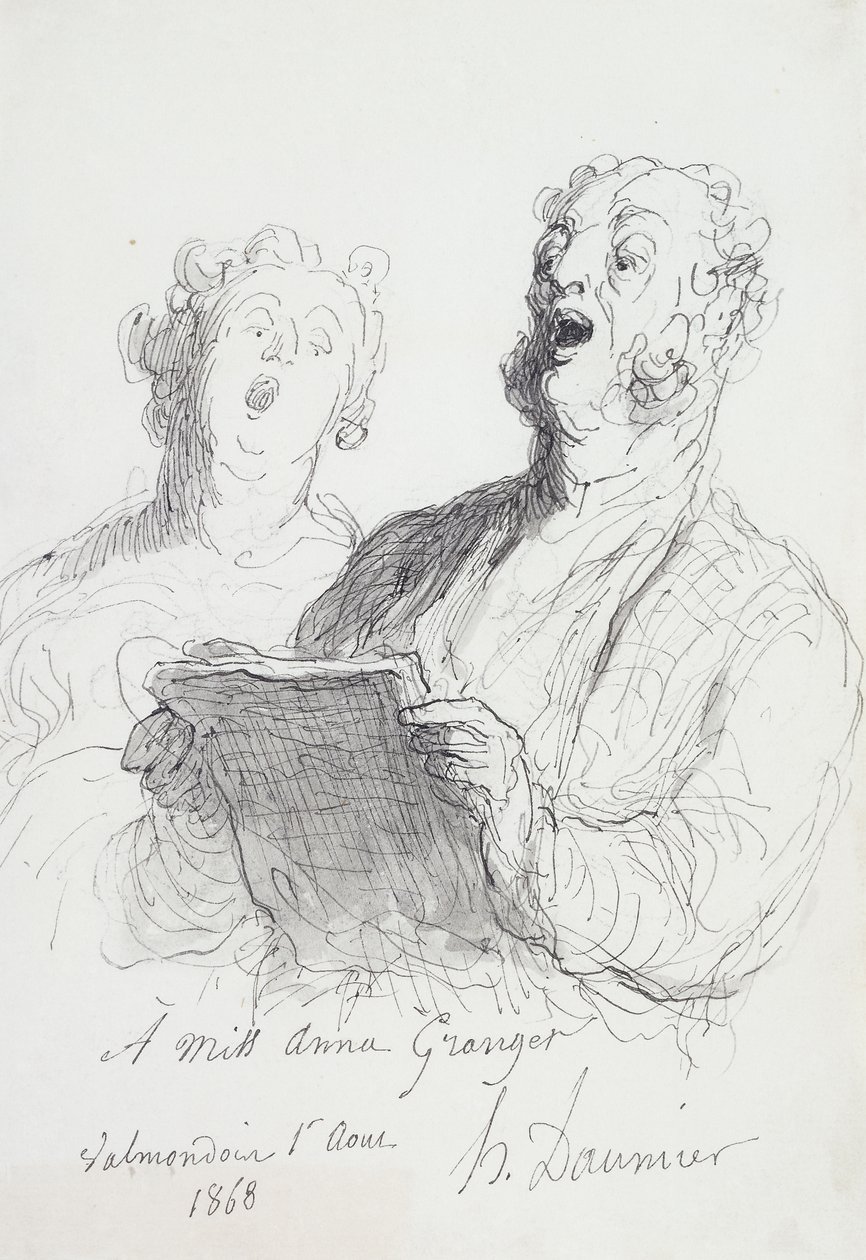 À Miss anna Granger
Valmondois 1r Aout
1868
h. Daumier